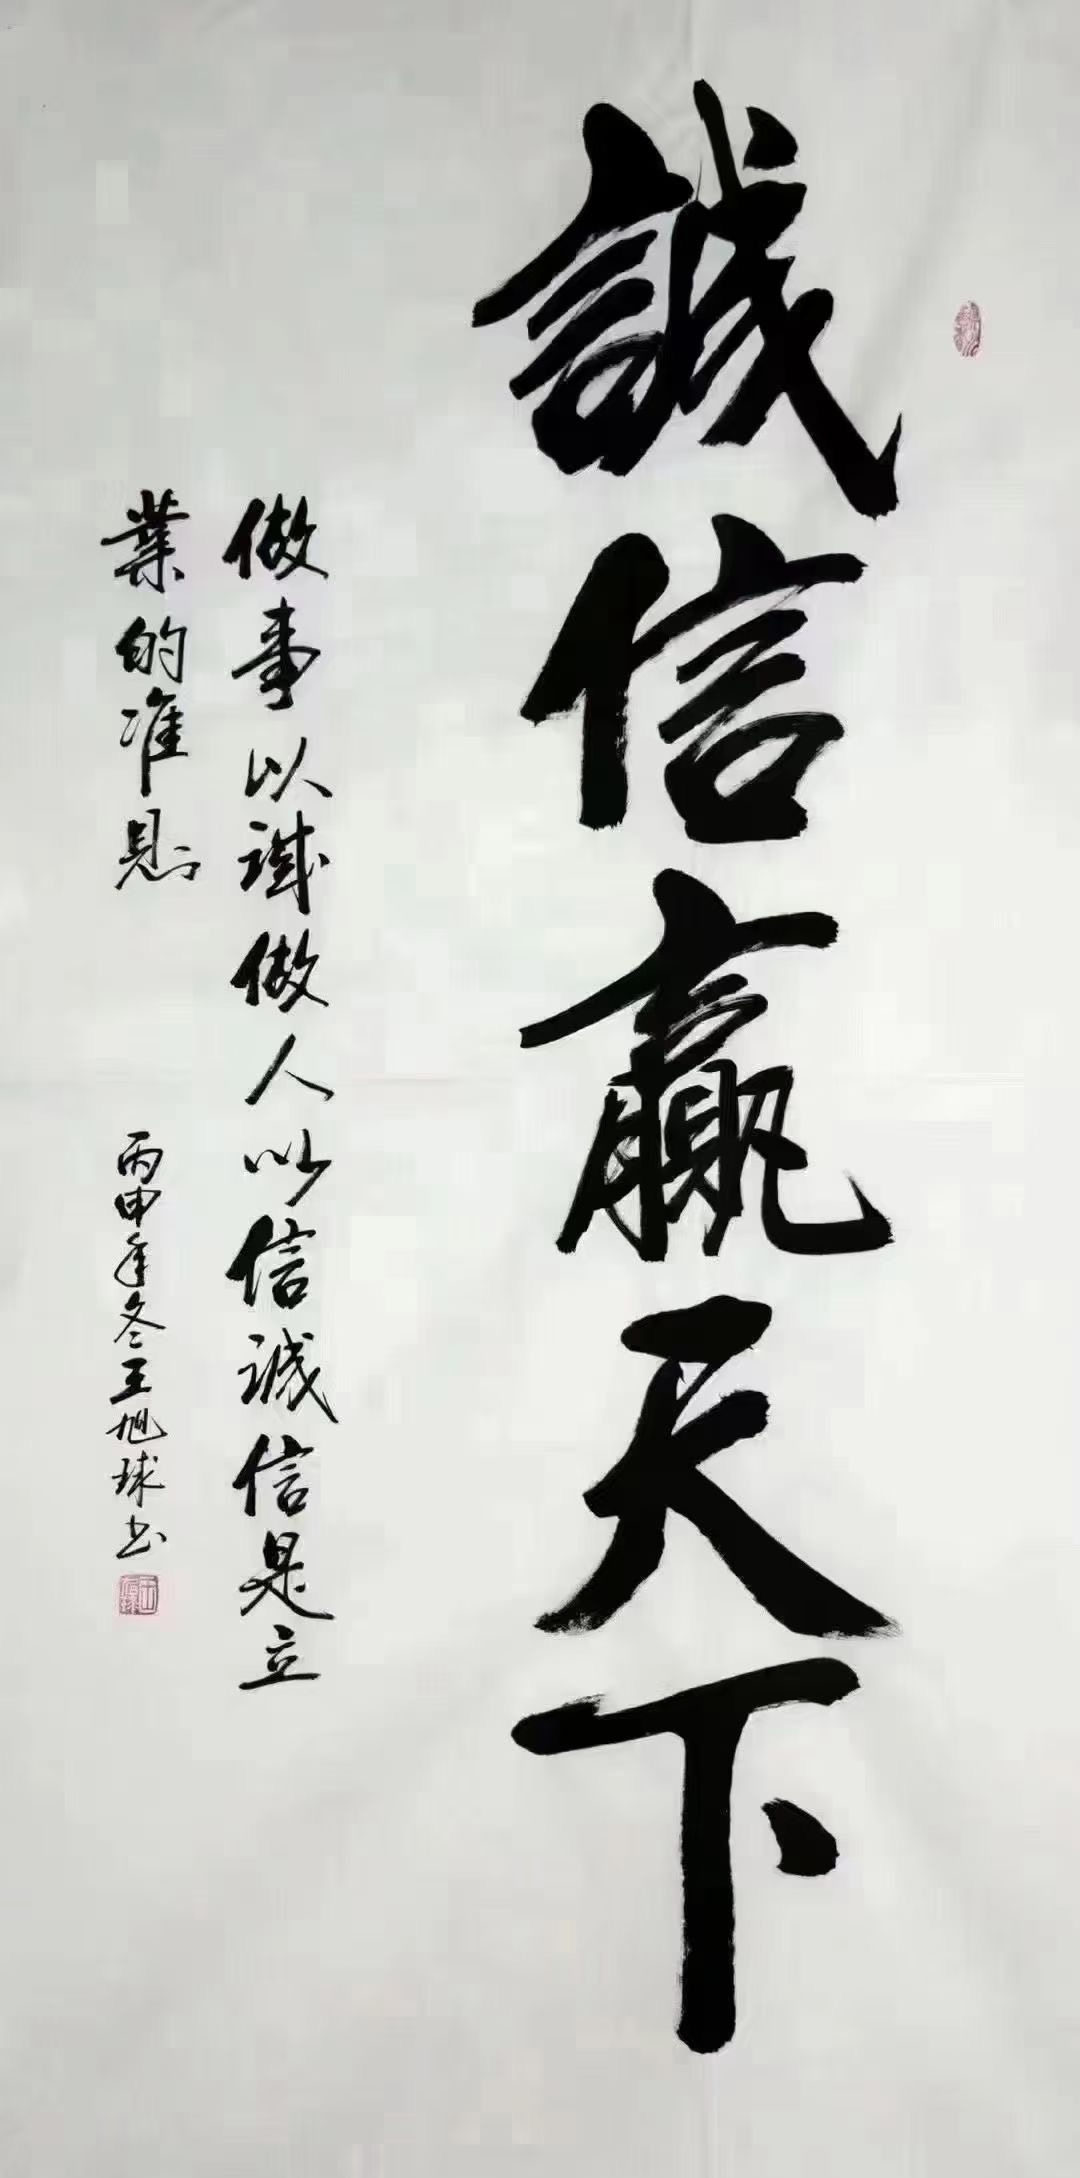 誠信贏天下
做事以誠做人以信誠信是立
業的准則
丙申年冬王旭球书